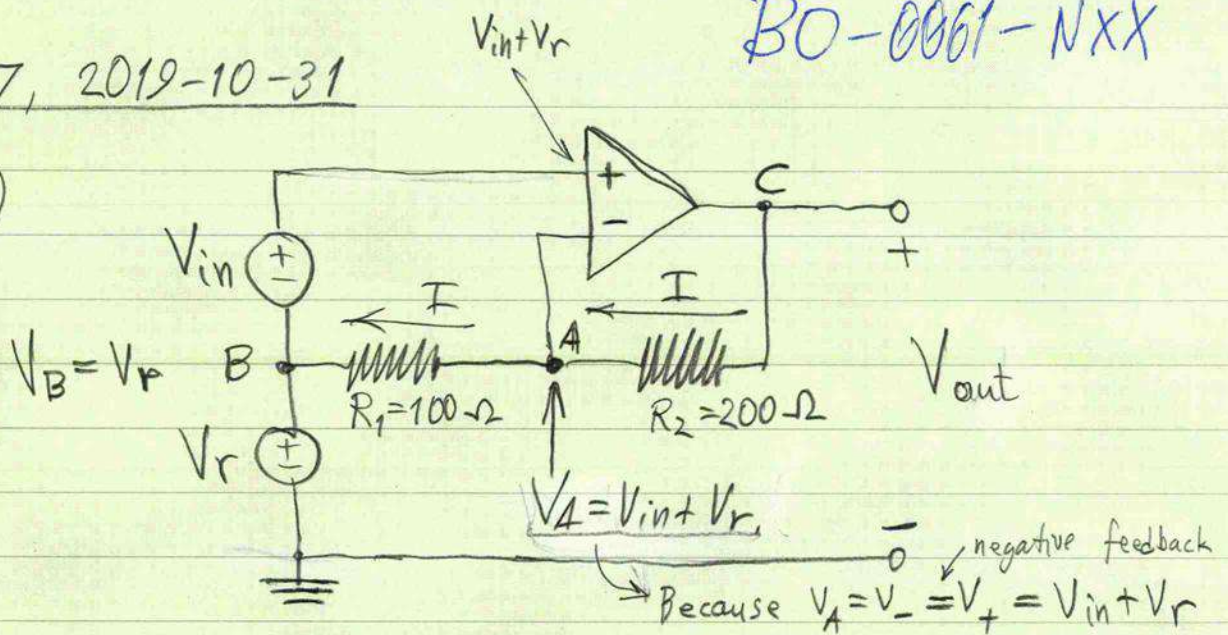 BO-0061-NXX
7, 2019-10-31
Vin+Vr
+
-
C
+
Vin
+
-
I
I
A
VB=Vr
B
R1=100Ω
R2=200Ω
Vout
Vr
+
-
VA=Vin+Vr,
-
negative feedback
Because VA=V-=V+=Vin+Vr